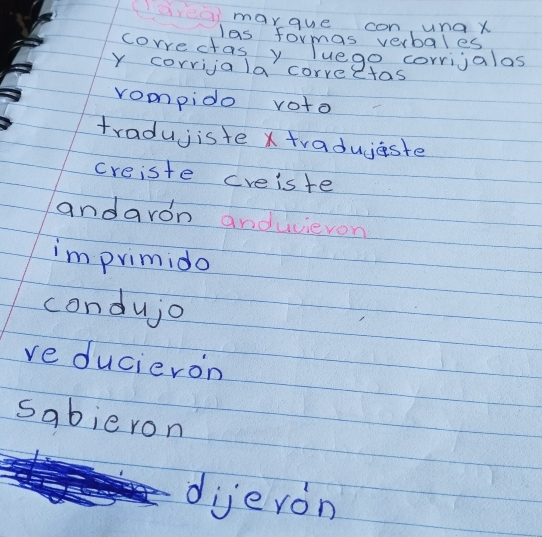 (Tarea) marque con una x
las formas verbales
correctas y luego corrijalas
y corrijala correctas
rompido roto
tradujiste x tradujeste
creiste creiste
andarón anduvieron
imprimido
condujo
reducierón
sabieron
dijerón